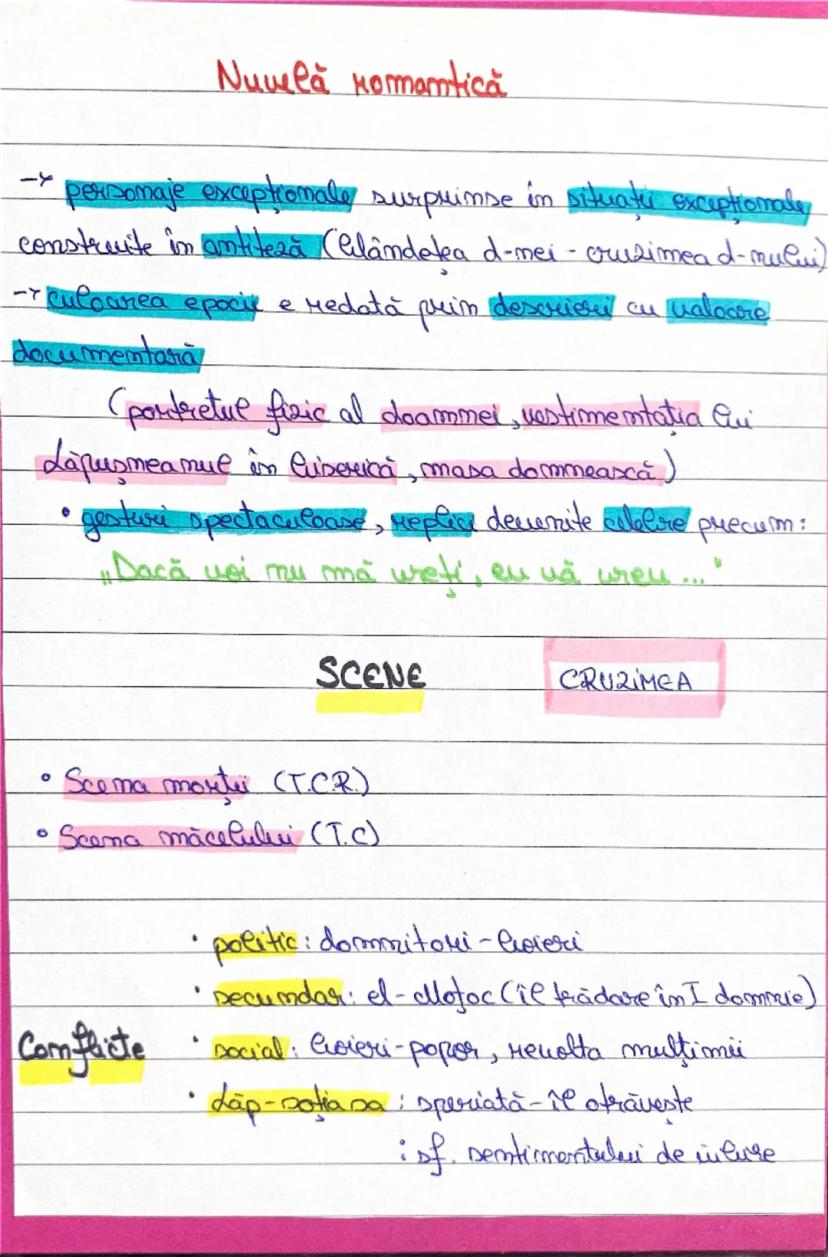 Nuvelă romantică
→ personaje excepționale surprinse în situații excepționale
construite în antiteză (blândețea d-nei - cruzimea d-nului)
→ culoarea epocii e redată prin descrieri cu valoare
documentară
(portretul fizic al doamnei, vestimentația lui
Lăpușneanul în biserică, masa domnească)
• gesturi spectaculoase, replici devenite celebre precum:
„Dacă voi nu mă vreți, eu vă vreu ..."
SCENE CRUZIMEA
• Scena morții (T.C.R.)
• Scena măcelului (T.C)
• politic: domnitori-boieri
• secundar: el-Moțoc (îl trădare în I domnie)
Conflicte • social: boieri-popor, revolta mulțimii
• Lăp-soția sa: speriată-îl otrăvește
: sf. sentimentului de iubire